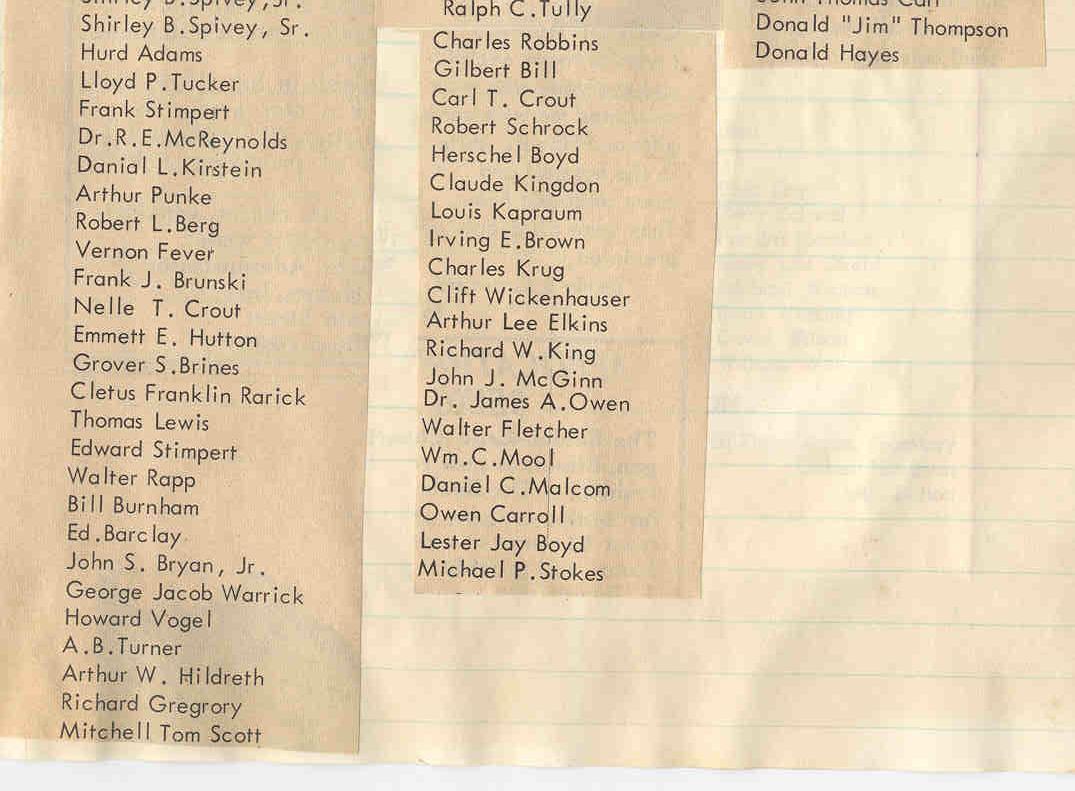 Shirley B.Spivey,Jr.
Shirley B.Spivey, Sr.
Hurd Adams
Lloyd P.Tucker
Frank Stimpert
Dr.R.E.McReynolds
Danial L.Kirstein
Arthur Punke
Robert L.Berg
Vernon Fever
Frank J. Brunski
Nelle T. Crout
Emmett E. Hutton
Grover S.Brines
Cletus Franklin Rarick
Thomas Lewis
Edward Stimpert
Walter Rapp
Bill Burnham
Ed.Barclay
John S. Bryan, Jr.
George Jacob Warrick
Howard Vogel
A.B.Turner
Arthur W. Hildreth
Richard Gregrory
Mitchell Tom Scott
Ralph C.Tully
Charles Robbins
Gilbert Bill
Carl T. Crout
Robert Schrock
Herschel Boyd
Claude Kingdon
Louis Kapraum
Irving E.Brown
Charles Krug
Clift Wickenhauser
Arthur Lee Elkins
Richard W.King
John J. McGinn
Dr. James A.Owen
Walter Fletcher
Wm.C.Mool
Daniel C.Malcom
Owen Carroll
Lester Jay Boyd
Michael P.Stokes
John Thomas Carl
Donald "Jim" Thompson
Donald Hayes